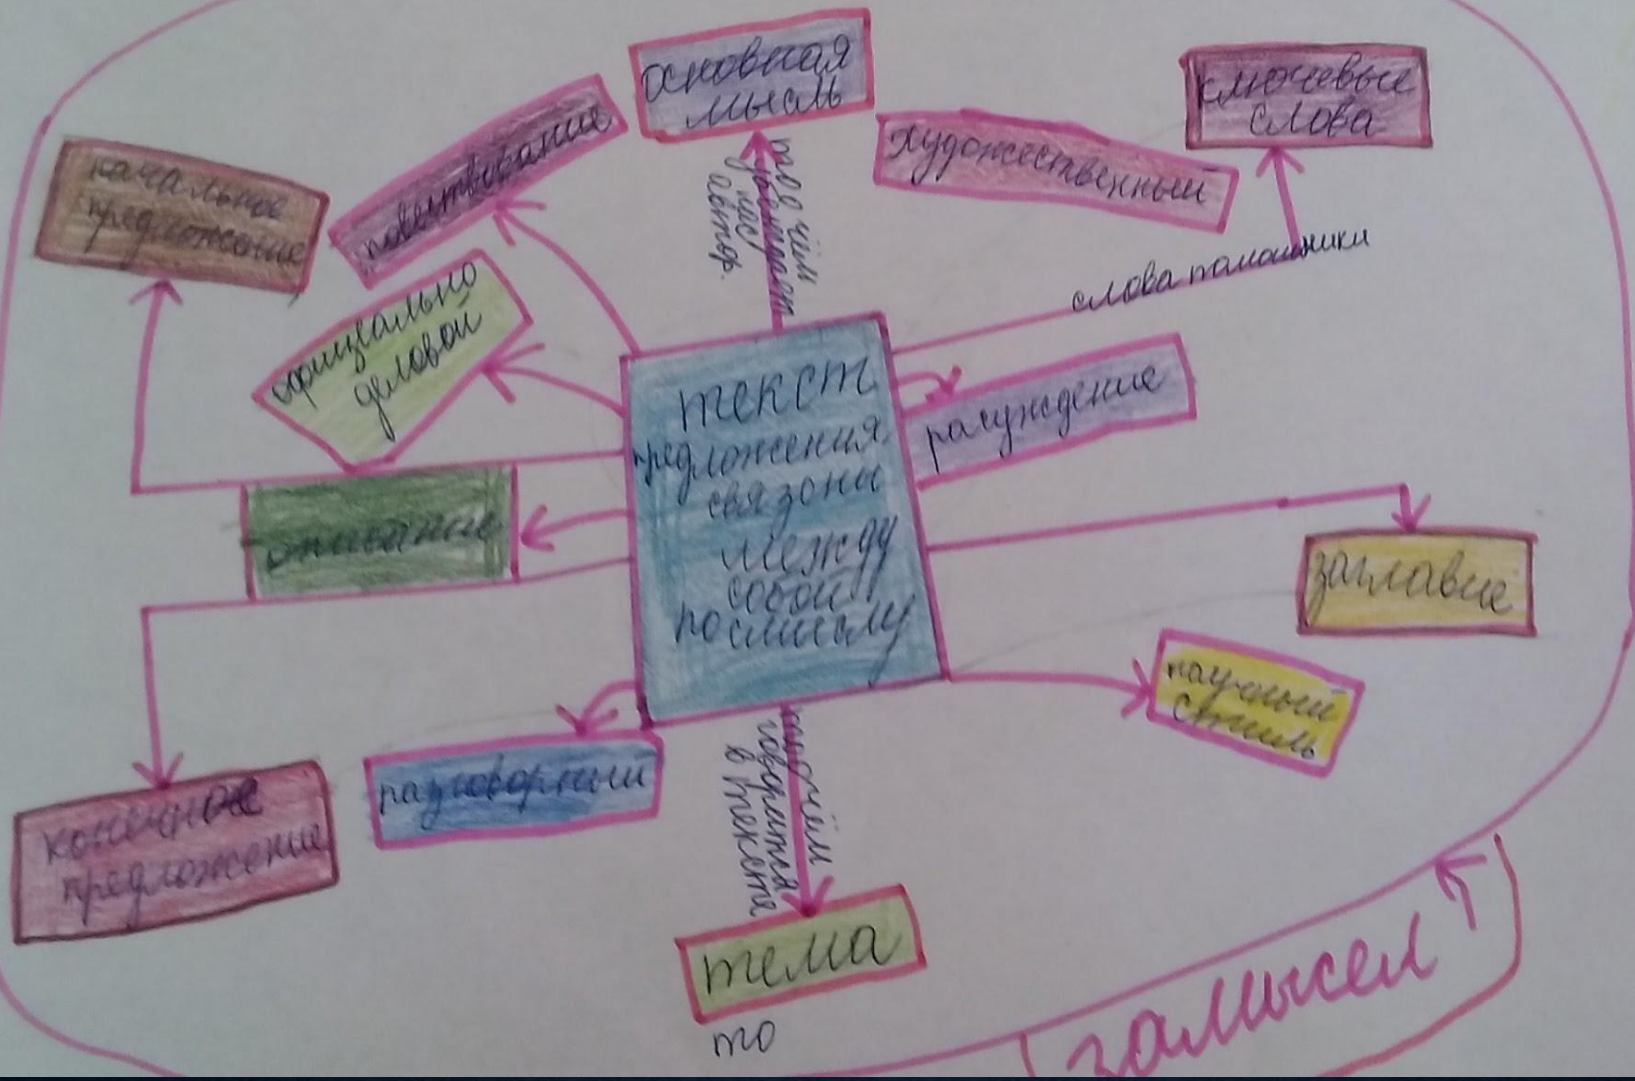 основная
мысль
ключевые
слова
повествование
художественный
начальное
предложение
то о чём
убеждает
нас
автор.
слова помошники
официально
деловой
текст
предложения
связоны
между
собой
по смыслу
расуждение
описание
заглавие
научный
стиль
разговорный
то о чём
говорится
в тексте
конечное
предложение
тема
то
замысел